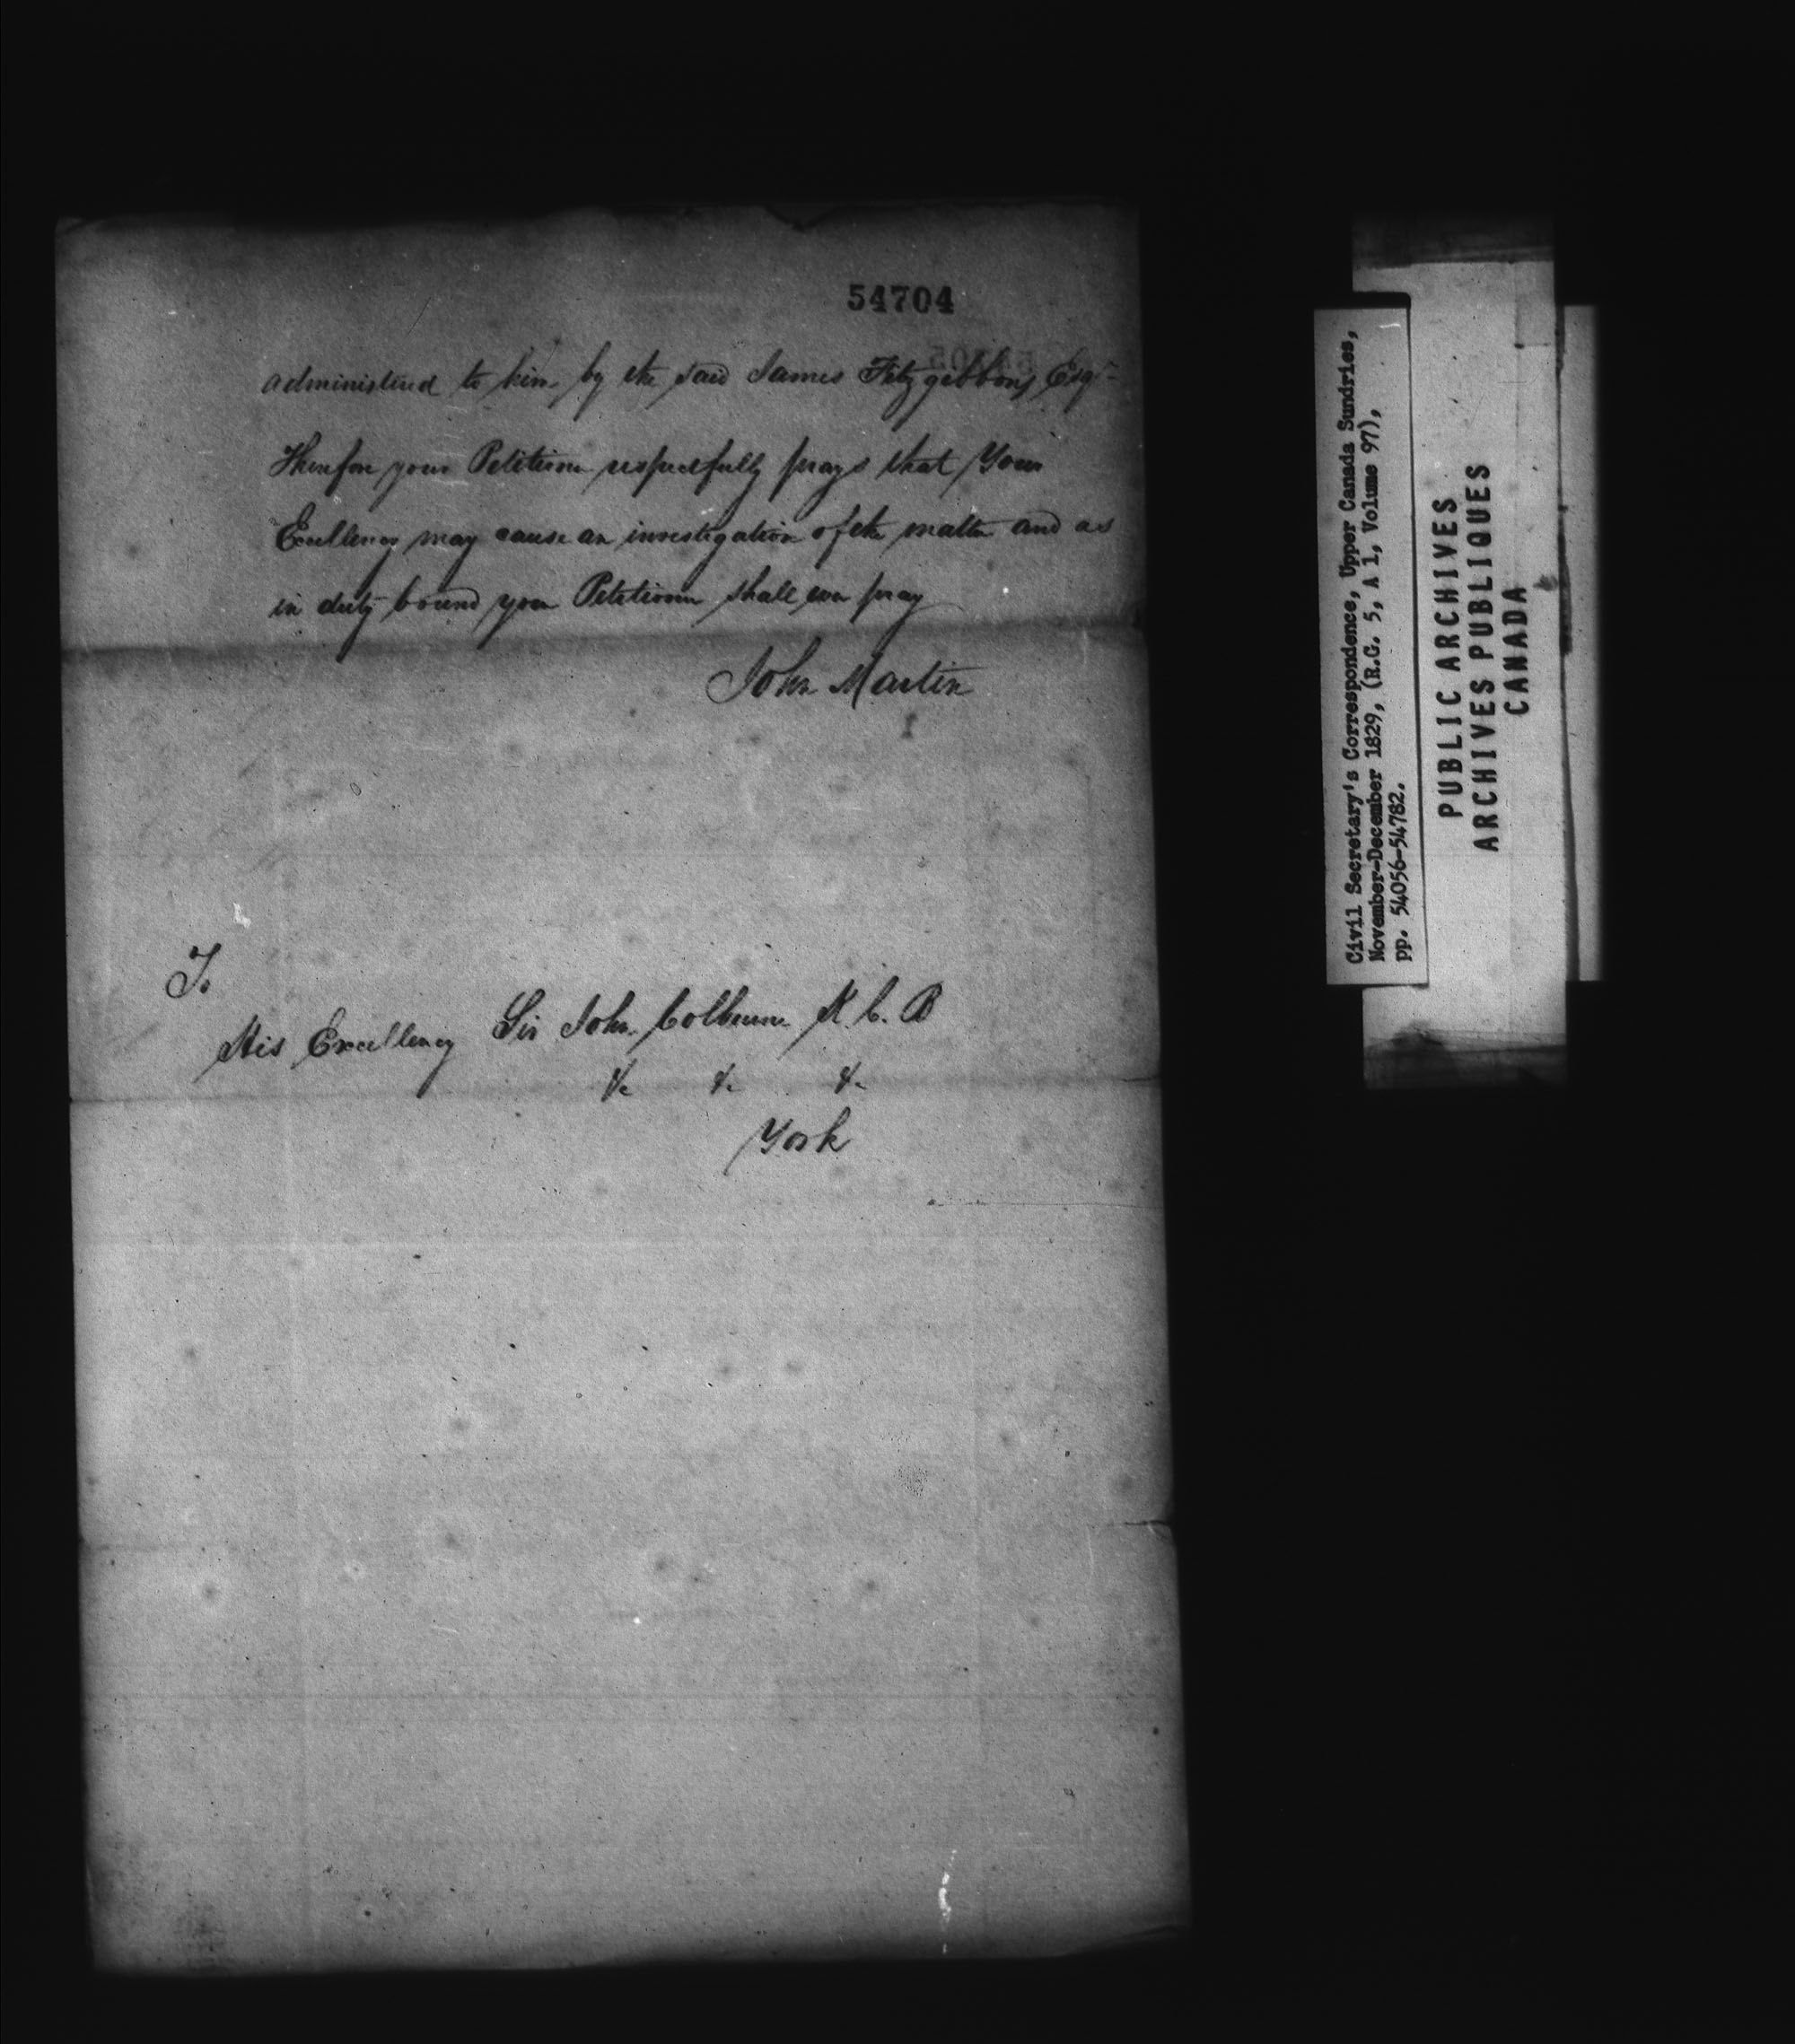 54704
administered to him by the said James Fitzgibbons Esqr
Therefore your Petitioner respectfully prays that Your
Excellency may cause an investigation of the matter and as
in duty bound your Petitioner shall ever pray
John Martin
To
His Excellency Sir John Colburne K. C. B
&c &c &c
York
Civil Secretary's Correspondence, Upper Canada Sundries,
November-December 1829, (R.G. 5, A 1, Volume 97),
pp. 54056-54782.
PUBLIC ARCHIVES
ARCHIVES PUBLIQUES
CANADA